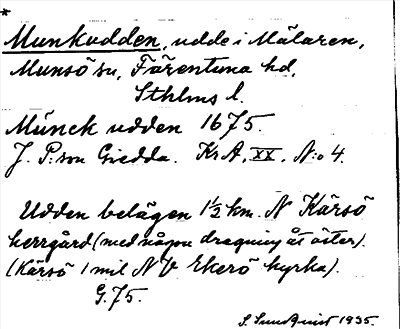 Munkudden, udde i Mälaren,
Munsö sn, Färentuna hd,
Sthlms l.
Münck udden 1675.
J. P:son Gedda. KrA, XX, N:o 4.
Udden belägen 1½ km. N Kärsö
herrgård (med någon dragning åt öster).
(Kärsö 1 mil NV Ekerö kyrka).
G. 75.
S. Sundquist 1935.